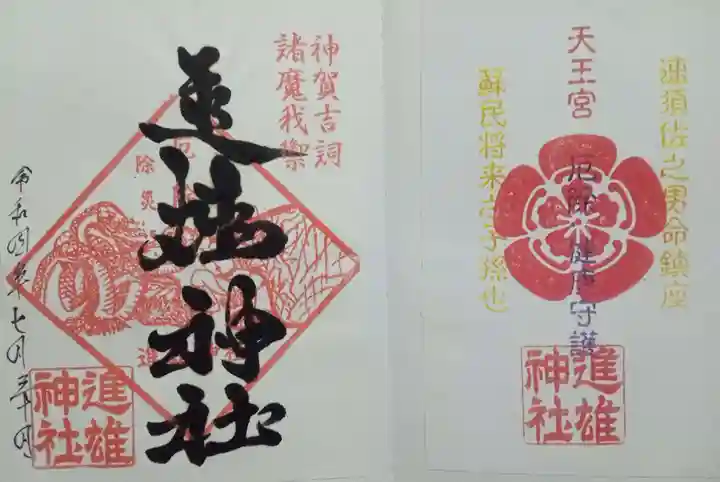 神賀吉詞
諸魔我禦
進雄神社
厄除
除災
令和四年七月三十日
進雄
神社
速須佐之男命鎮座
天王宮
厄除 健康守護
蘇民将来之子孫也
進雄
神社